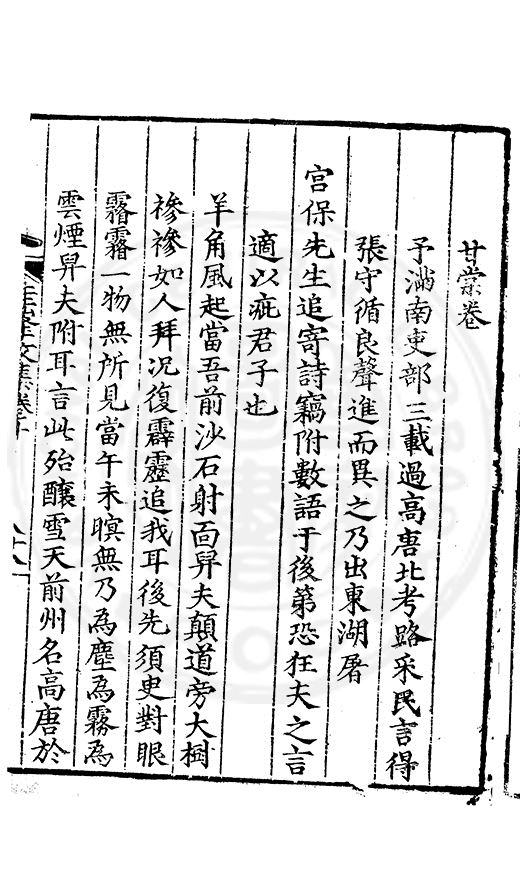 甘棠卷
予滿南吏部三載過高唐北考路采民言得
張守循良聲進而異之乃出東湖屠
宮保先生追寄詩竊附數語于後第恐狂夫之言
適以疵君子也
羊角風起當吾前沙石射面舁夫顛道旁大樹
摻摻如人拜况復霹靂追我耳後先須吏對眼
霧霧一物無所見當午未暝無乃為塵為霧為
雲煙舁夫附耳言此殆釀雪天前州名高唐於
文集卷